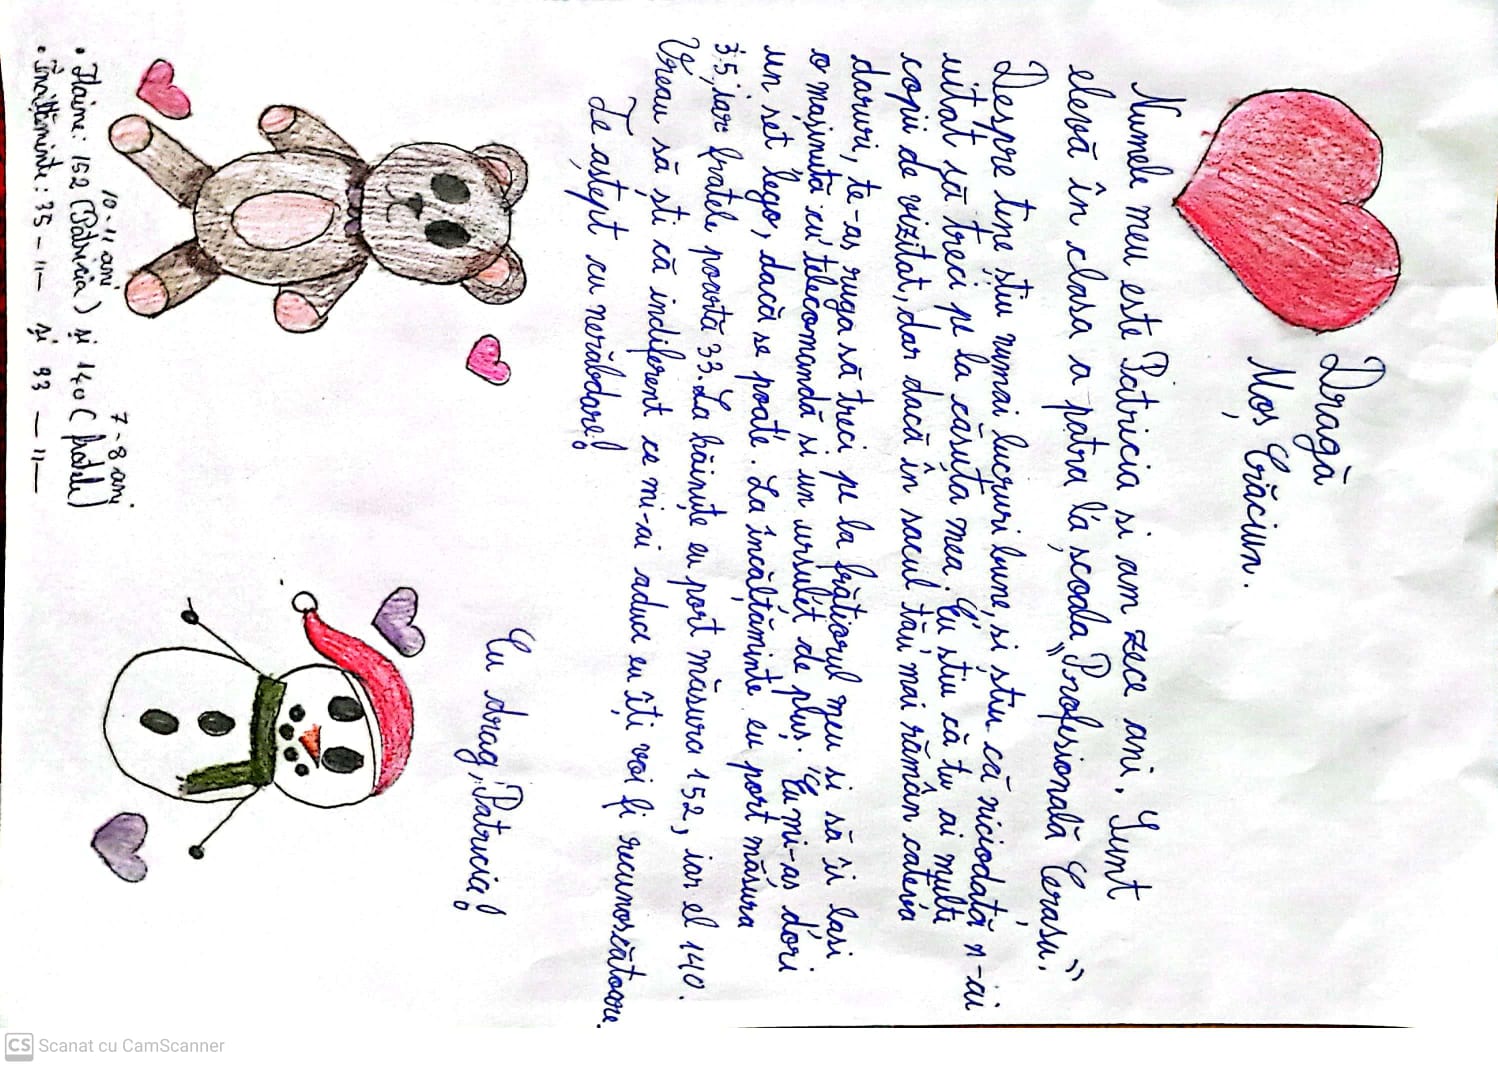 Dragă
Moș Crăciun.
Numele meu este Patricia si am zece ani. Sunt
elevă în clasa a patra la școala „Profesională Cerașu".
Despre tine știu numai lucruri bune, si știu că niciodată n-ai
uitat să treci pe la căsuța mea. Eu știu că tu ai mulți
copii de vizitat, dar dacă în sacul tău mai rămân cateva
daruri, te-aș ruga să treci pe la frățiorul meu și să îi lași
o mașinuță cu telecomandă si un ursuleț de pluș. Eu mi-aș dori
un set lego, dacă se poate. La încălțăminte eu port măsura
35, iar fratele poartă 33. La hăinuțe eu port măsura 152, iar el 140.
Vreau să ști că indiferent ce mi-ai aduce eu îți voi fi recunoscătoare.
Te aștept cu nerăbdare!
Cu drag, Patricia!
10-11 ani 7-8 ani
• Haine: 152 (Patricia) și 140 (fratele)
• Încălțăminte: 35 -"- și 33 -"-
CS Scanat cu CamScanner